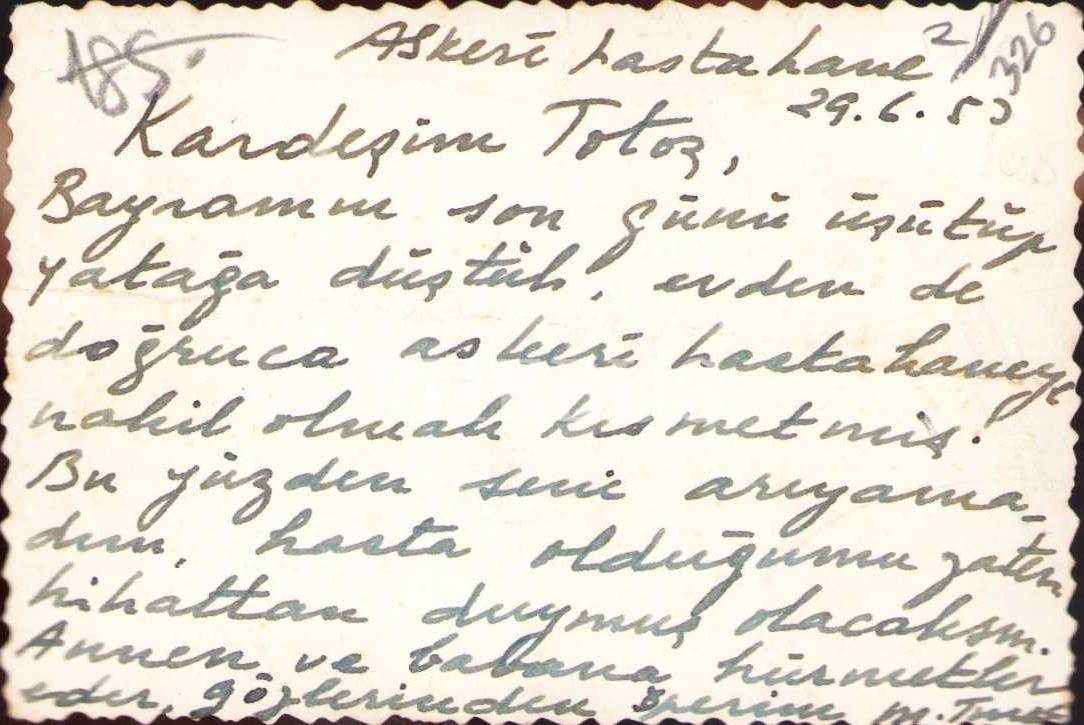 185
2/326
Askeri hastahane
29.6.53
Kardeşim Totoş,
Bayramın son günü üşütüp
yatağa düştük, evden de
doğruca askeri hastahaneye
nakil olmak kısmetmiş.
Bu yüzden seni arıyama-
dım, hasta olduğumu zaten
Nihattan duymuş olacaksın.
Annen ve babana hürmetler
eder, gözlerinden öperim M.